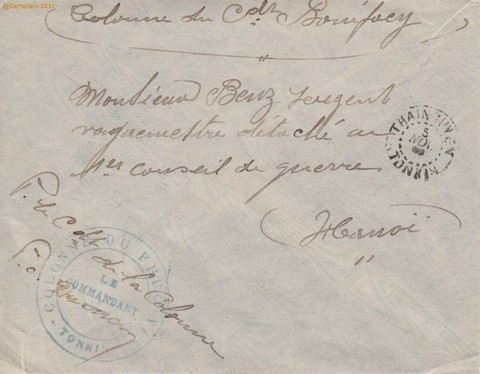 ©Cartacaro 2011
(Colonne du Cdt Bonifacy)
"
Monsieur Benz sergent
vaguemestre détaché au
1er conseil de guerre
Hanoï
"
THAIN
5
NOV
09
TONKIN
P. le Cdt de la Colonne
P.O.
COLONNE DU
LE
COMMANDANT
TONKIN